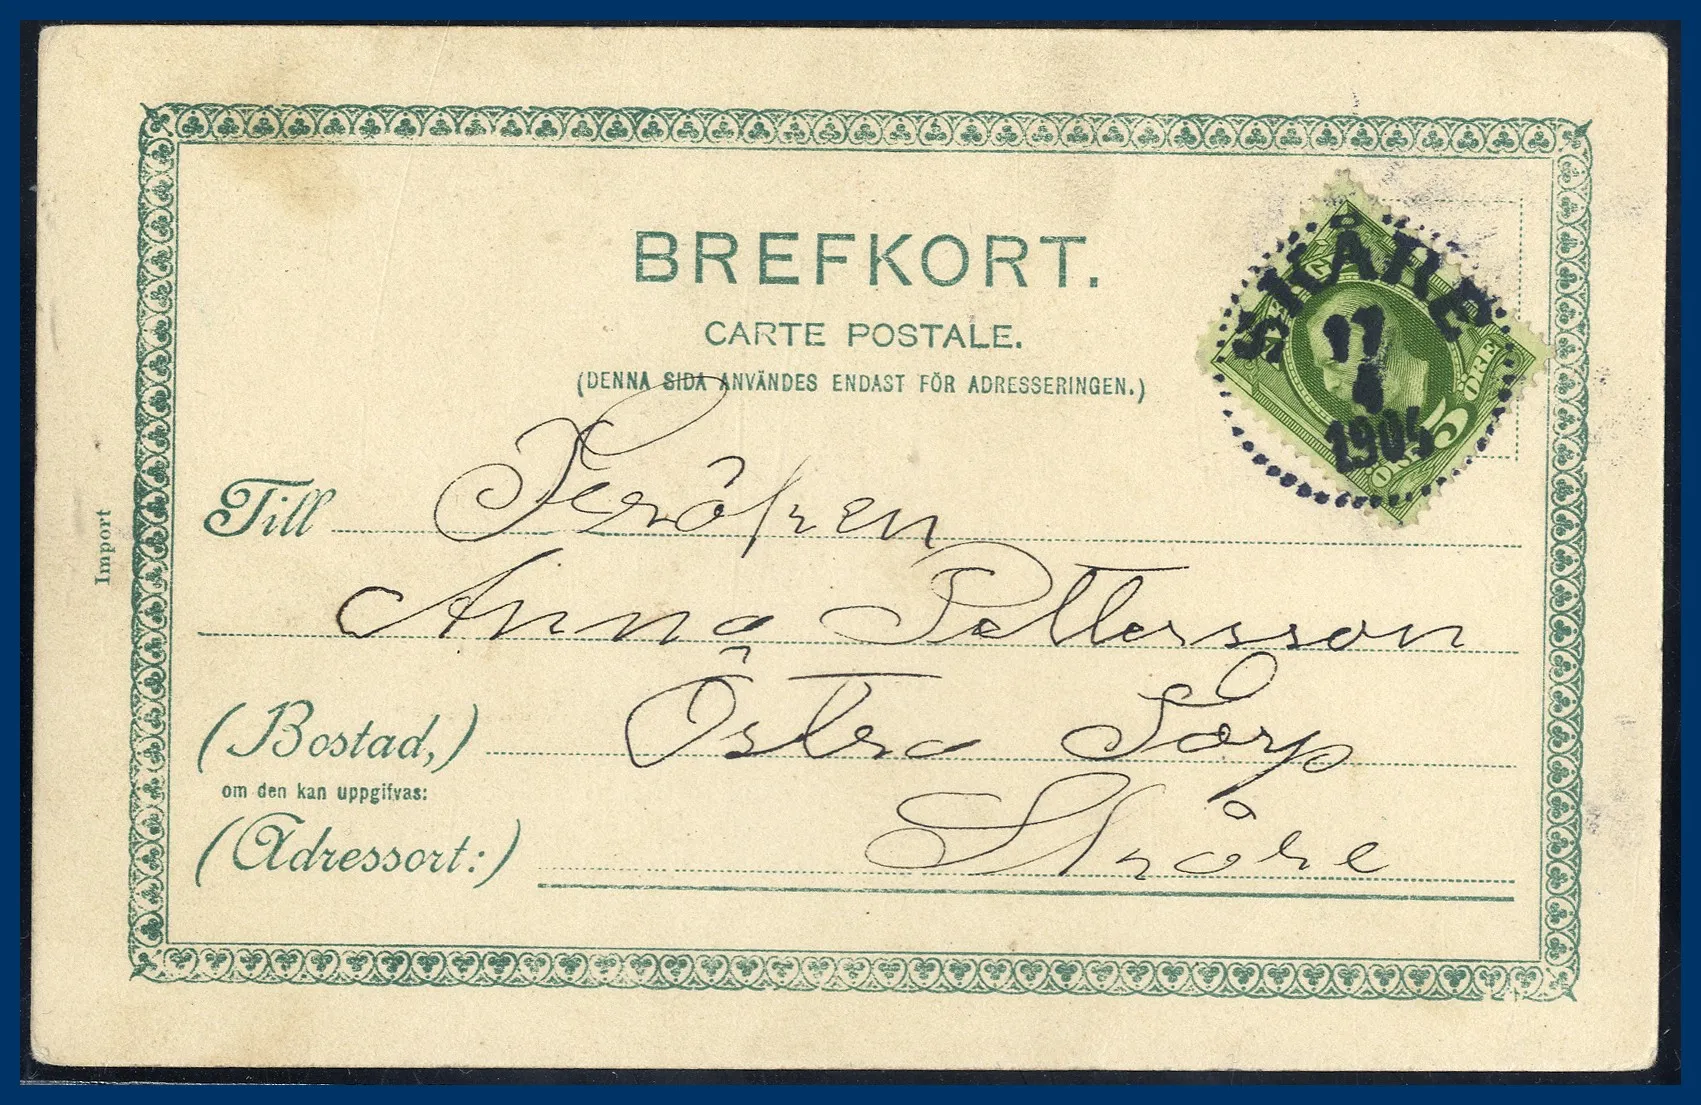 BREFKORT.
CARTE POSTALE.
(DENNA SIDA ANVÄNDES ENDAST FÖR ADRESSERINGEN.)
SKÅRE
17
4
1905
5 ÖRE
ÖRE
Till Fröken
Anna Pettersson
(Bostad,) Östra Sörp
om den kan uppgifvas:
(Adressort:) Skåre
Import